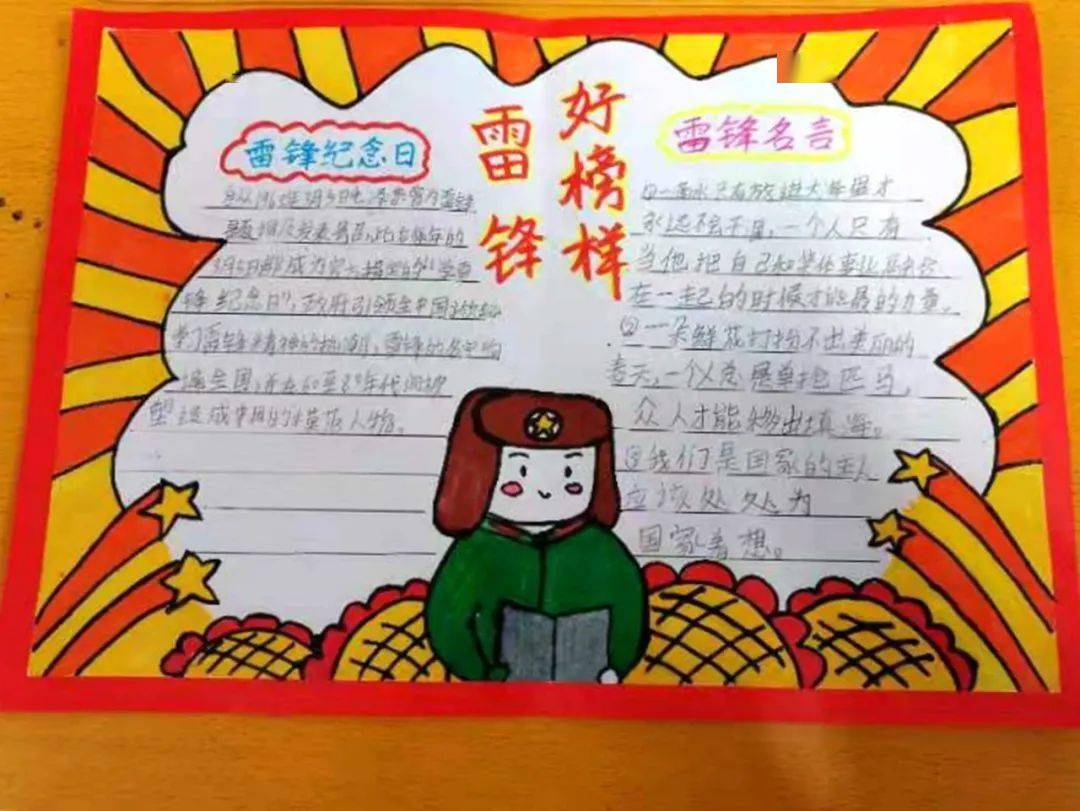 雷锋
好榜样
雷锋纪念日
自从1963年3月5日毛泽东曾为雷锋
3月5日都成为官方指定的"学雷
锋纪念日",政府引领全中国
学习雷锋精神的热潮,雷锋的名字响
遍全国,并在60至80年代
造成中国的模范人物。
雷锋名言
①一滴水只有放进大海里才
永远不会干涸,一个人只有
当他把自己和集体事业
在一起的时候才能最的力量。
②一朵鲜花打扮不出美丽的
春天,一个人总是单枪匹马,
众人才能移山填海。
③我们是国家的主人
应该处处为
国家着想。